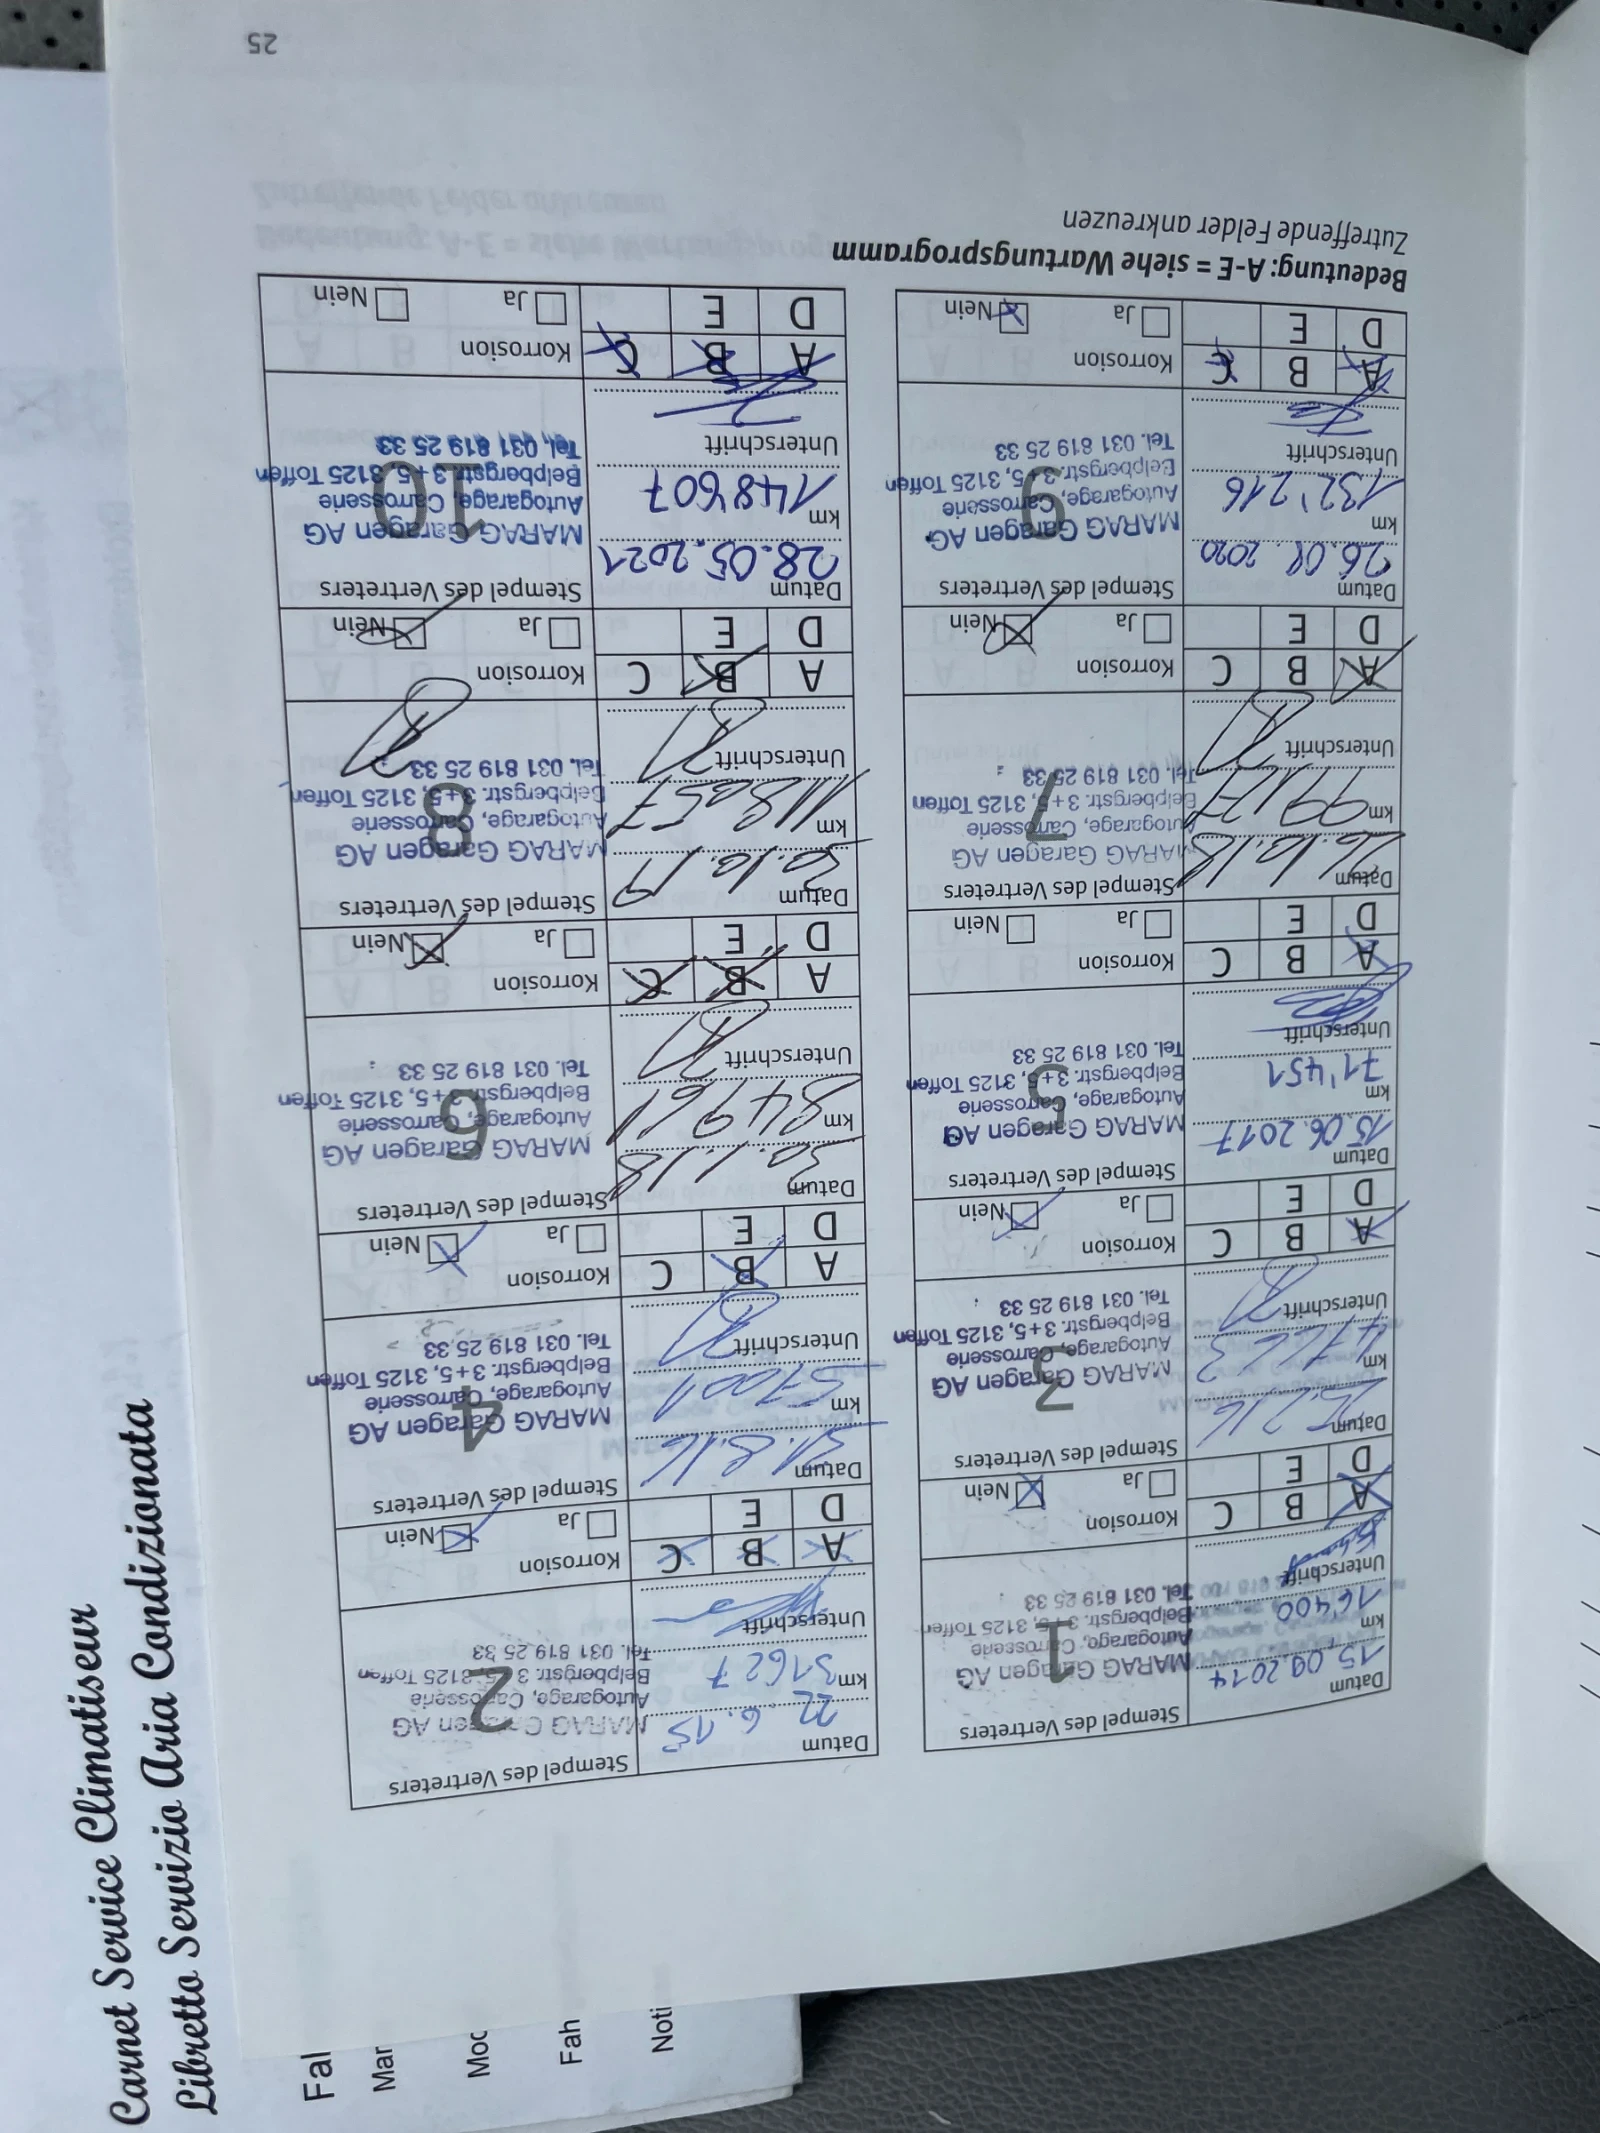 Stempel des Vertreters
1
MARAG Garagen AG
Autogarage, Carrosserie
Belpbergstr. 3+5, 3125 Toffen
Tel. 031 819 25 33
Datum
15.09.2014
km
16'400
Unterschrift
Korrosion
Ja
Nein
A B C
D E
Stempel des Vertreters
2
MARAG Garagen AG
Autogarage, Carrosserie
Belpbergstr. 3+5, 3125 Toffen
Tel. 031 819 25 33
Datum
22.6.15
km
31627
Unterschrift
Korrosion
Ja
Nein
A B C
D E
Stempel des Vertreters
3
MARAG Garagen AG
Autogarage, Carrosserie
Belpbergstr. 3+5, 3125 Toffen
Tel. 031 819 25 33
Datum
km
Unterschrift
Korrosion
Ja
Nein
A B C
D E
Stempel des Vertreters
4
MARAG Garagen AG
Autogarage, Carrosserie
Belpbergstr. 3+5, 3125 Toffen
Tel. 031 819 25 33
Datum
31.8.16
km
57001
Unterschrift
Korrosion
Ja
Nein
A B C
D E
Stempel des Vertreters
5
MARAG Garagen AG
Autogarage, Carrosserie
Belpbergstr. 3+5, 3125 Toffen
Tel. 031 819 25 33
Datum
15.06.2017
km
71'451
Unterschrift
Korrosion
Ja
Nein
A B C
D E
Stempel des Vertreters
6
MARAG Garagen AG
Autogarage, Carrosserie
Belpbergstr. 3+5, 3125 Toffen
Tel. 031 819 25 33
Datum
30.1.18
km
84961
Unterschrift
Korrosion
Ja
Nein
A B C
D E
Stempel des Vertreters
7
MARAG Garagen AG
Autogarage, Carrosserie
Belpbergstr. 3+5, 3125 Toffen
Tel. 031 819 25 33
Datum
26.10.18
km
99127
Unterschrift
Korrosion
Ja
Nein
A B C
D E
Stempel des Vertreters
8
MARAG Garagen AG
Autogarage, Carrosserie
Belpbergstr. 3+5, 3125 Toffen
Tel. 031 819 25 33
Datum
30.10.19
km
118257
Unterschrift
Korrosion
Ja
Nein
A B C
D E
Stempel des Vertreters
9
MARAG Garagen AG
Autogarage, Carrosserie
Belpbergstr. 3+5, 3125 Toffen
Tel. 031 819 25 33
Datum
26.08.2020
km
132'216
Unterschrift
Korrosion
Ja
Nein
A B C
D E
Stempel des Vertreters
10
MARAG Garagen AG
Autogarage, Carrosserie
Belpbergstr. 3+5, 3125 Toffen
Tel. 031 819 25 33
Datum
28.05.2021
km
148'607
Unterschrift
Korrosion
Ja
Nein
A B C
D E
Bedeutung: A-E = siehe Wartungsprogramm
Zutreffende Felder ankreuzen
25
Carnet Service Climatiseur
Libretto Servizio Aria Condizionata
Mar
Fah